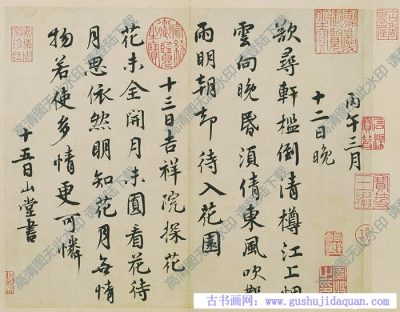 丙午三月
十二日晚
欲尋軒檻倒清樽江上烟
雲向晚昏須倩東風吹散
雨明朝却待入花園
十三日吉祥院探花
花未全開月未圓看花待
月思依然明知花月無情
物若使多情更可憐
十五日山堂書
古书画网：www.gushujidaquan.com